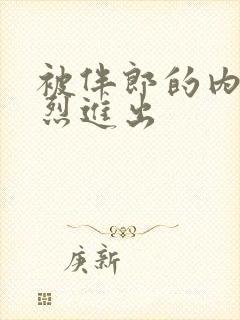 被伴郎的内
烈进出
庚新